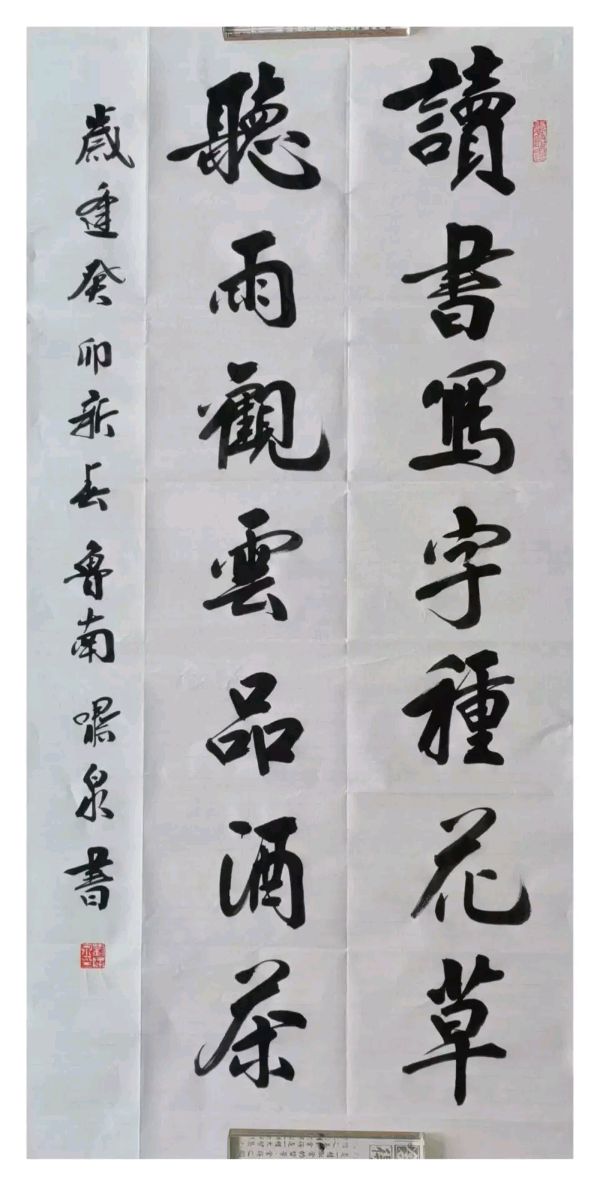 讀書寫字種花草
聽雨觀雲品酒茶
歲逢癸卯新春魯南泉書